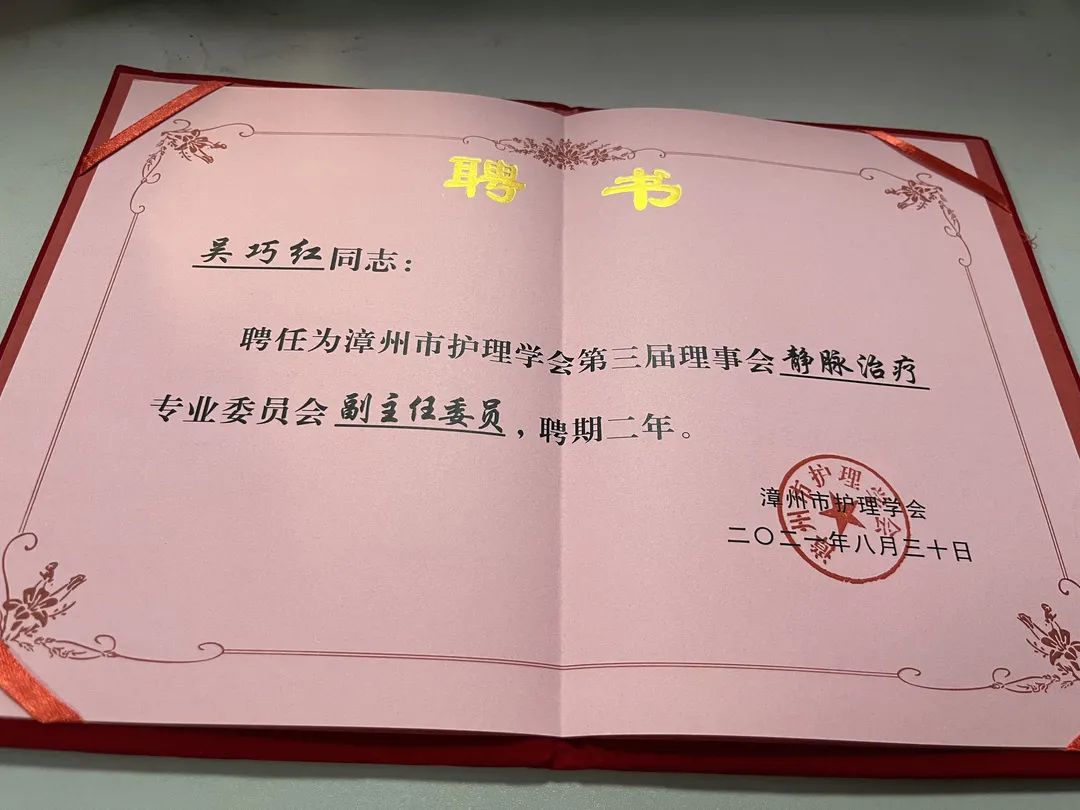 聘 书
吴巧红同志：
聘任为漳州市护理学会第三届理事会静脉治疗
专业委员会副主任委员，聘期二年。
漳州市护理学会
二〇二一年八月三十日
漳州市护理学会